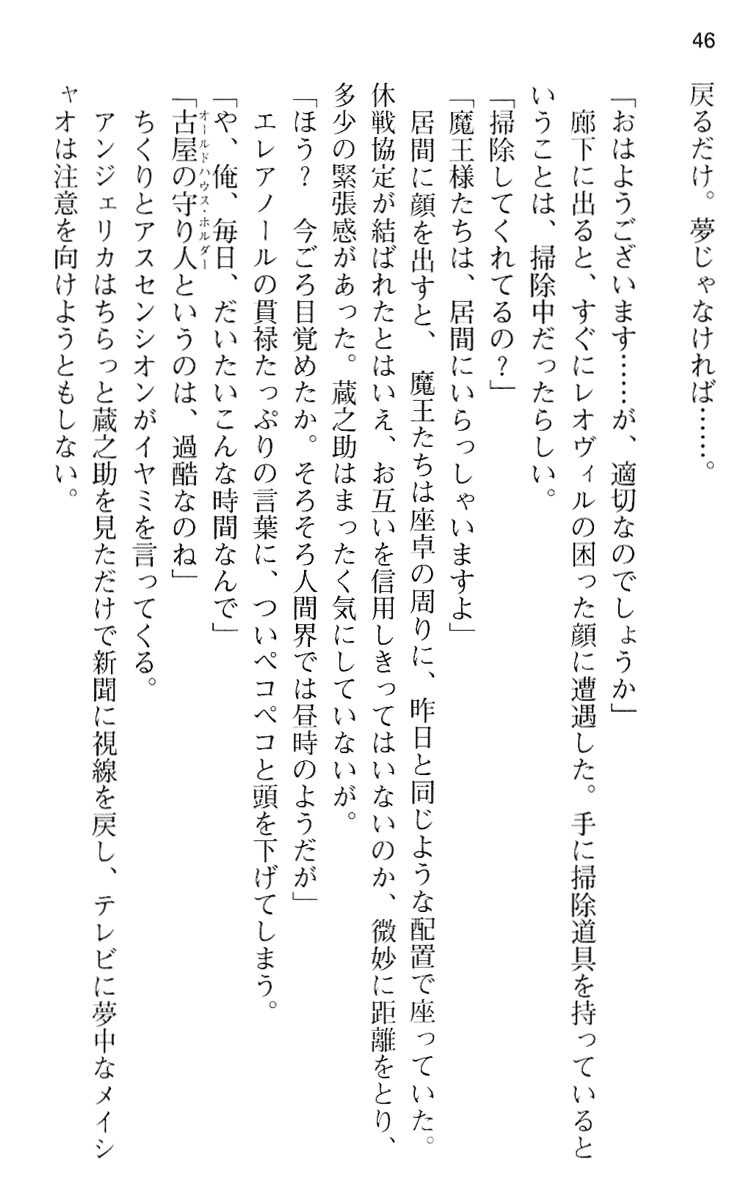 46
戻るだけ。夢じゃなければ……。
「おはようございます……が、適切なのでしょうか」
廊下に出ると、すぐにレオヴィルの困った顔に遭遇した。手に掃除道具を持っていると
いうことは、掃除中だったらしい。
「掃除してくれてるの？」
「魔王様たちは、居間にいらっしゃいますよ」
居間に顔を出すと、魔王たちは座卓の周りに、昨日と同じような配置で座っていた。
休戦協定が結ばれたとはいえ、お互いを信用しきってはいないのか、微妙に距離をとり、
多少の緊張感があった。蔵之助はまったく気にしていないが。
「ほう？　今ごろ目覚めたか。そろそろ人間界では昼時のようだが」
エレアノールの貫禄たっぷりの言葉に、ついペコペコと頭を下げてしまう。
「や、俺、毎日、だいたいこんな時間なんで」
オールドハウス・ホルダー
「古屋の守り人というのは、過酷なのね」
ちくりとアスセンシオンがイヤミを言ってくる。
アンジェリカはちらっと蔵之助を見ただけで新聞に視線を戻し、テレビに夢中なメイシ
ャオは注意を向けようともしない。